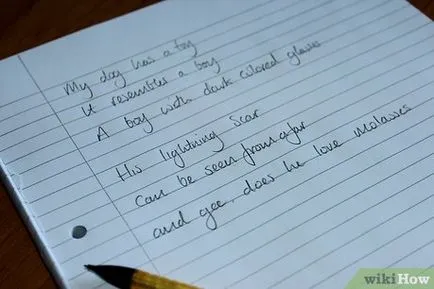 My dog has a toy
It resembles a boy
A boy with dark colored glasses
His lightning scar
Can be seen from afar
and gee, does he love molasses
wikiHow